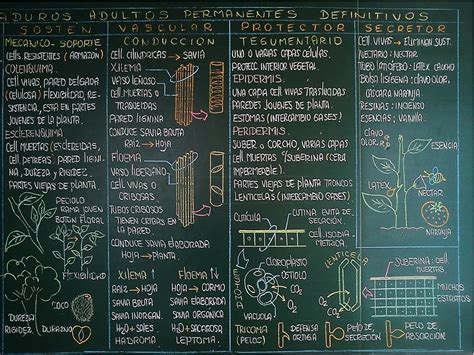 ADUROS ADULTOS PERMANENTES DEFINITIVOS
SOSTEN
MECANICO-SOPORTE
CELLS. RESISTENTES (ARMAZÓN)
COLENQUIMA
CELL VIVAS PARED DELGADA
(CELULOSA) FLEXIBILIDAD, RE-
SISTENCIA, ESTA EN PARTES
JOVENES DE LA PLANTA.
ESCLERENQUIMA
CELL MUERTAS (ESCLEREIDAS,
CELL PETREAS) PARED LIGNI
NA, DUREZA Y RIGIDEZ.
PARTES VIEJAS DE PLANTA.
PECIOLO
RAMA JOVEN
BOTON FLORAL
FLEXIBILIDAD
COCO
DUREZA
RIGIDEZ
DURAZNO
VASCULAR
CONDUCCION
CELL. CILINDRICAS → SAVIA
XILEMA
VASO LEÑOSO
CELL MUERTAS O
TRAQUEIDAS
PARED LIGNINA
CONDUCE SAVIA BRUTA
RAIZ → HOJA
FLOEMA
VASO LIBERIANO
CELL VIVAS O
CRIBOSAS
TUBOS CRIBOSOS
TIENEN CRIBAS EN
LA PARED.
CONDUCE SAVIA ELABORADA
HOJA → PLANTA.
XILEMA ↑ FLOEMA ↑↓
RAIZ → HOJA HOJA → CORMO
SAVIA BRUTA SAVIA ELABORADA
SAVIA INORGAN. SAVIA ORGANICA
H2O + SALES H2O + SACAROSA
HADROMA LEPTOMA
PROTECTOR
TEGUMENTARIO
UNO O VARIAS CAPAS CELULAS.
PROTEC. INTERIOR VEGETAL.
EPIDERMIS.
UNA CAPA CELL VIVAS TRASLUCIDAS
PAREDES JOVENES DE PLANTA.
ESTOMAS (INTERCAMBIO GASES)
PERIDERMIS.
SUBER O CORCHO, VARIAS CAPAS
CELL MUERTAS SUBERINA (CERA
IMPERMEABLE).
PARTES VIEJAS DE PLANTA TRONCOS
LENTICELAS (INTERCAMBIO GASES)
CUTICULA
CUTINA EVITA DE-
SECACIÓN.
CELL. ISODIA-
METRICA.
CLOROPLASTO
OSTIOLO
CO2
O2
VACUOLA
LENTICELA
O2
CO2
SUBERINA: CELL
MUERTAS
MUCHOS
ESTRATOS
TRICOMA
(PELOS)
DEFENSA
ORTIGA
PELO DE
SECRECIÓN
PELO DE
ABSORCIÓN
SECRETOR
CELL VIVAS → ELIMINAN SUST.
NECTARIO: NECTAR
TUBO LATICIFERO: LATEX CAUCHO
BOLSA LISIGENA: CLAVO OLOR.
CASCARA NARANJA
RESINAS: INCIENSO
ESENCIAS: VAINILLA
CLAVO
OLOR
ESENCIA
LATEX
NECTAR
NARANJA